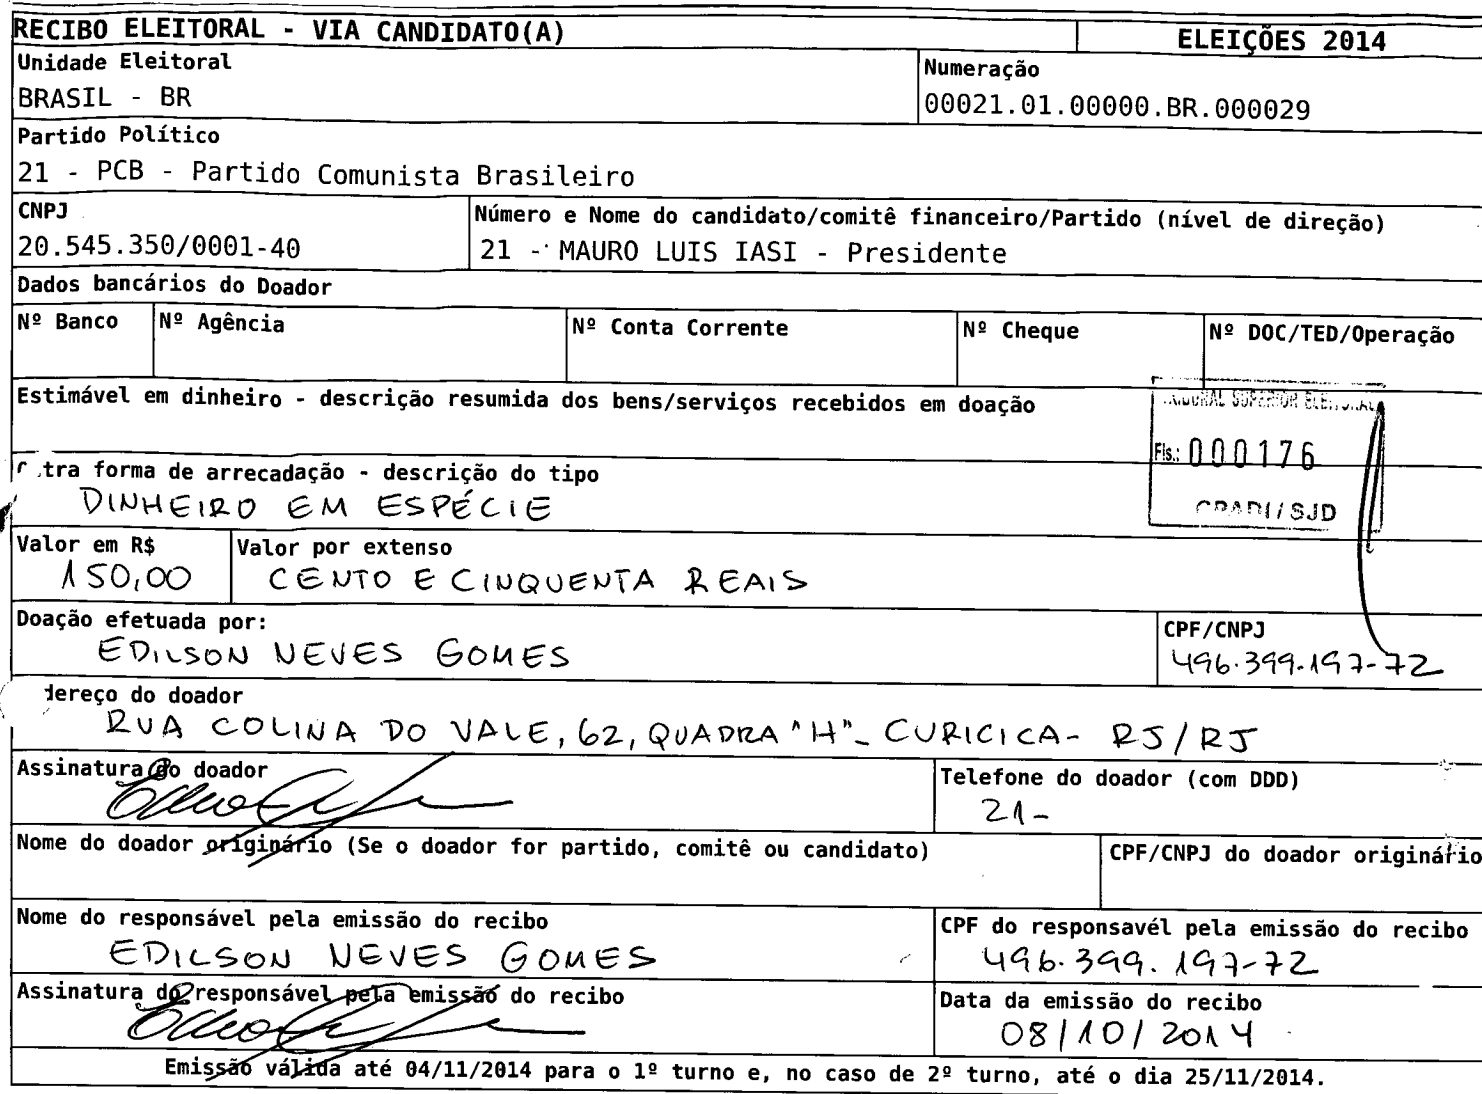 RECIBO ELEITORAL - VIA CANDIDATO(A)
ELEIÇÕES 2014
Unidade Eleitoral
BRASIL - BR
Numeração
00021.01.00000.BR.000029
Partido Político
21 - PCB - Partido Comunista Brasileiro
CNPJ
20.545.350/0001-40
Número e Nome do candidato/comitê financeiro/Partido (nível de direção)
21 - MAURO LUIS IASI - Presidente
Dados bancários do Doador
Nº Banco
Nº Agência
Nº Conta Corrente
Nº Cheque
Nº DOC/TED/Operação
Estimável em dinheiro - descrição resumida dos bens/serviços recebidos em doação
TRIBUNAL SUPERIOR ELEITORAL
Fls.: 000176
CPADI/SJD
tra forma de arrecadação - descrição do tipo
DINHEIRO EM ESPÉCIE
Valor em R$
150,00
Valor por extenso
CENTO E CINQUENTA REAIS
Doação efetuada por:
EDILSON NEVES GOMES
CPF/CNPJ
496.399.197-72
dereço do doador
RUA COLINA DO VALE, 62, QUADRA "H" - CURICICA - RJ/RJ
Assinatura do doador
Telefone do doador (com DDD)
21-
Nome do doador originário (Se o doador for partido, comitê ou candidato)
CPF/CNPJ do doador originário
Nome do responsável pela emissão do recibo
EDILSON NEVES GOMES
CPF do responsavél pela emissão do recibo
496.399.197-72
Assinatura do responsável pela emissão do recibo
Data da emissão do recibo
08/10/2014
Emissão válida até 04/11/2014 para o 1º turno e, no caso de 2º turno, até o dia 25/11/2014.